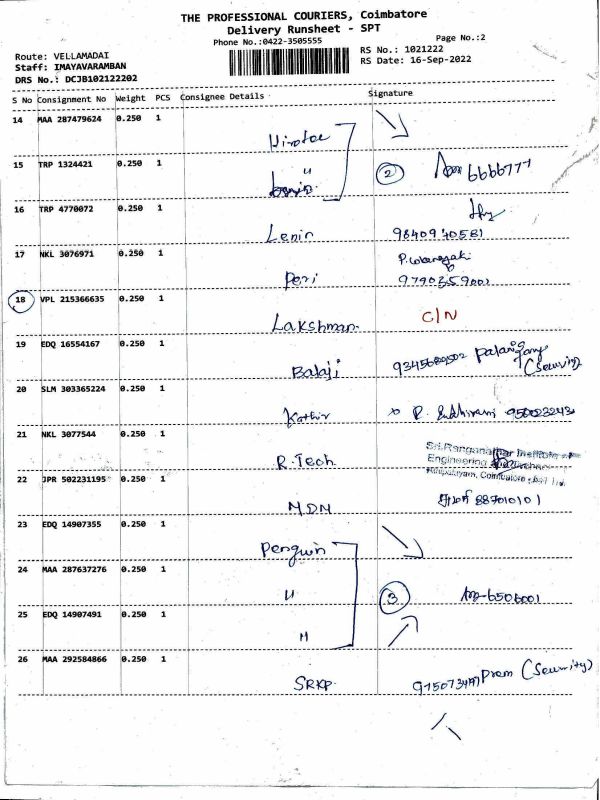 THE PROFESSIONAL COURIERS, Coimbatore
Delivery Runsheet - SPT
Phone No.:0422-3505555
Page No.:2
Route: VELLAMADAI
Staff: IMAYAVARAMBAN
DRS No.: DCJB102122202
RS No.: 1021222
RS Date: 16-Sep-2022
S No Consignment No Weight PCS Consignee Details Signature
14 MAA 287479624 0.250 1
15 TRP 1324421 0.250 1 " 2 6666777
16 TRP 4770072 0.250 1
Lenin 9840940581
17 NKL 3076971 0.250 1
Peri 9790359001
18 VPL 215366635 0.250 1
Lakshman C/N
19 EDQ 16554167 0.250 1
Balaji
20 SLM 303365224 0.250 1
Kathir
21 NKL 3077544 0.250 1
R.Tech Sri Ranganathar Institute
Engineering
Coimbatore
22 JPR 502231195 0.250 1
MDM 887010101
23 EDQ 14907355 0.250 1
Penguin
24 MAA 287637276 0.250 1
" 3 6506001
25 EDQ 14907491 0.250 1
"
26 MAA 292584866 0.250 1
SRKP Prem (Security)